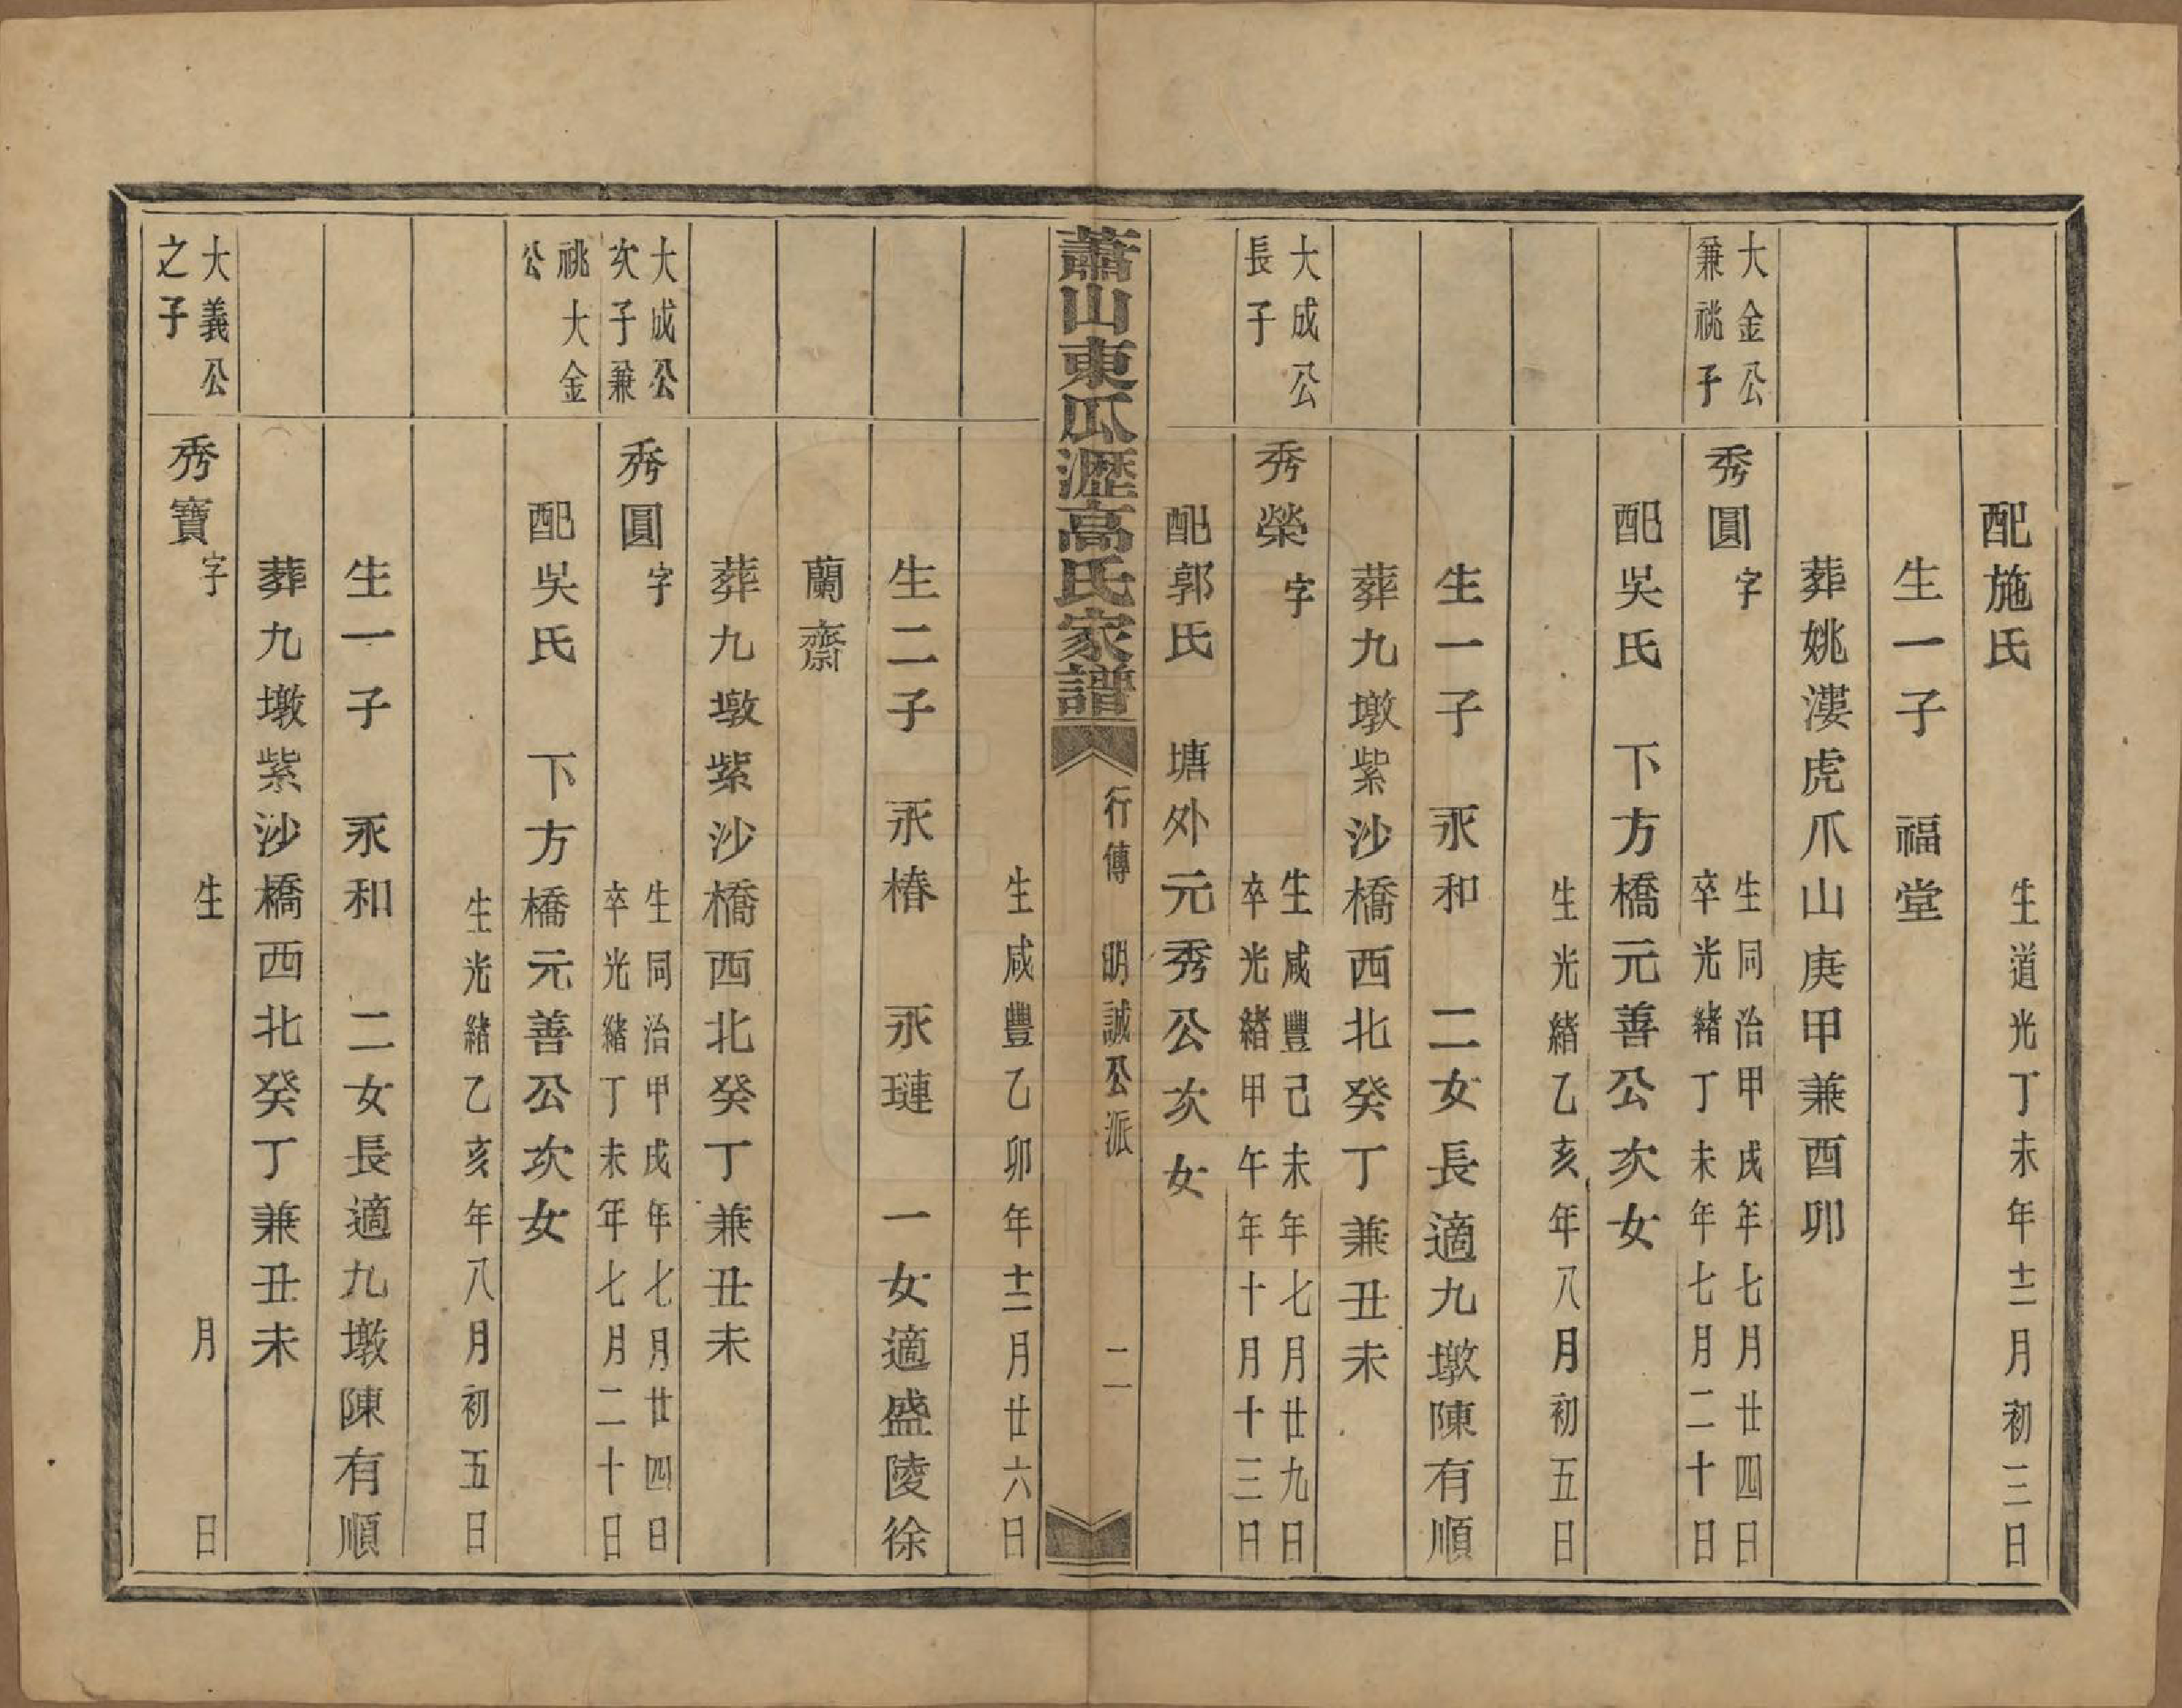 配施氏
生道光丁未年十二月初三日
生一子　福堂
葬姚漊虎爪山庚甲兼酉卯
大金公
兼祧子
秀圓字
生同治甲戌年七月廿四日
卒光緒丁未年七月二十日
配吳氏　下方橋元善公次女
生光緒乙亥年八月初五日
生一子　永和　二女長適九墩陳有順
葬九墩紫沙橋西北癸丁兼丑未
大成公
長子
秀榮字
生咸豐己未年七月廿九日
卒光緒甲午年十月十三日
配郭氏　塘外元秀公次女
蕭山東瓜瀝高氏家譜
行傳　明誠公派
二
生咸豐乙卯年十二月廿六日
生二子　永椿　永璉　一女適盛陵徐
蘭齋
葬九墩紫沙橋西北癸丁兼丑未
大成公
次子兼
祧大金
公
秀圓字
生同治甲戌年七月廿四日
卒光緒丁未年七月二十日
配吳氏　下方橋元善公次女
生光緒乙亥年八月初五日
生一子　永和　二女長適九墩陳有順
葬九墩紫沙橋西北癸丁兼丑未
大義公
之子
秀寶字
生　月　日